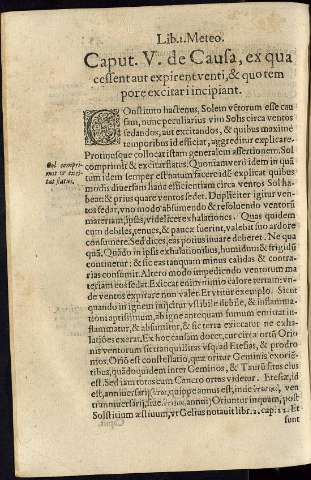 Lib.1.Meteo.
Caput. V. de Causa, ex qua
cessent aut expirent venti, & quo tem
pore excitari incipiant.
COnstituto hactenus, Solem vẽtorum esse cau
sam, nunc peculiarius vim Solis circa ventos
sedandos, aut excitandos, & quibus maximè
temporibus id efficiat, aggreditur explicare.
Protinusque collocat istam generalem assertionem. Sol
comprimit & excitat flatus. Quoniam verò idem in quã
Sol compri-
mit & exci-
tat flatus.
tum idem semper est natum facere idẽ explicat quibus
modis diuersam hanc efficientiam circa ventos Sol ha-
beat: & prius quare ventos sedet. Dupliciter igitur ven-
tos sedat, vno modo absumendo & resoluendo ventorũ
materiam ipsius, videlicet exhalationes. Quas quidem
cum debiles, tenues, & paucæ fuerint, valebit suo ardore
consumere. Sed dices, eas potius iuuare deberet. Ne qua
quã. Quãdo in ipsis exhalationibus, humidum & frigidũ
continetur: & sic eas tanquam minus calidas & contra-
rias consumit. Altero modo impediendo ventorum ma
teriam eos sedat. Exiccat enim nimio calore terram: vn-
de ventos expirare non valet. Et vtitur exemplo. Sicut
quando in ignem imijcitur visibile debile, & inflamma-
tioni aptissimum, ab igne antequam fumum emittat in-
flammatur, & absumitur, & sic terra exiccatur ne exha-
latiões exerat. Ex hoc causam docet, cur circa ortũ Orio
nis ventorum sit tranquillitas vsq; ad Etesias, & prodro
mos. Oriõ est constellatio, quæ oritur Geminis exoriẽ-
tibus, quãdoquidem inter Geminos, & Taurũ situs eius
est. Sed iam totus cum Cancro ortus videtur. Etesiæ, id
est, anniuersarij, quippe annus est, inde ven
ti anniuersarij, siue anni, Oriontur inquam, post
Solstitium æstiuum, vt Gelius notauit libr. 2. cap. 22. Et
sunt